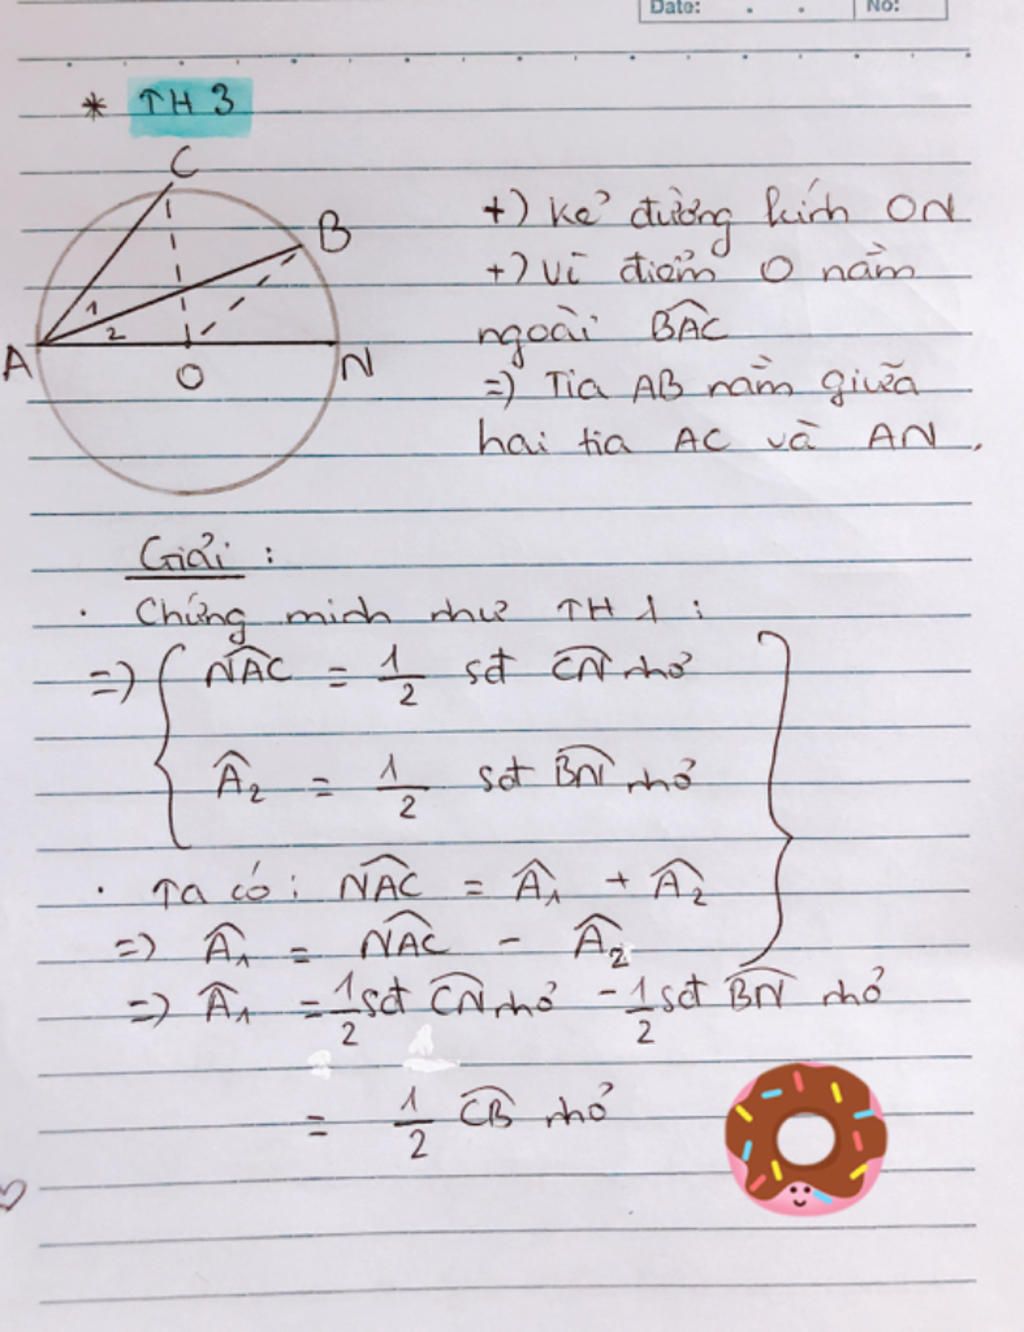 Date: . . No:
* TH 3
C
B
1
2
A
O
N
+) Kẻ đường kính ON
+) Vì điểm O nằm
ngoài \widehat{BAC}
=) Tia AB nằm giữa
hai tia AC và AN.
Giải:
. Chứng minh như TH 1:
=) { \widehat{NAC} = 1/2 sđ \overset{\frown}{CN} nhỏ
\widehat{A}_2 = 1/2 sđ \overset{\frown}{BN} nhỏ }
. Ta có: \widehat{NAC} = \widehat{A}_1 + \widehat{A}_2
=) \widehat{A}_1 = \widehat{NAC} - \widehat{A}_2
=) \widehat{A}_1 = 1/2 sđ \overset{\frown}{CN} nhỏ - 1/2 sđ \overset{\frown}{BN} nhỏ
= 1/2 \overset{\frown}{CB} nhỏ